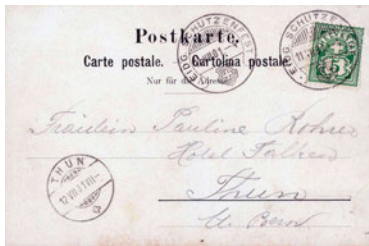 Postkarte.
Carte postale. — Cartolina postale.
Nur für die Adresse.
EIDG. SCHÜTZENFEST
EIDG. SCHÜTZENFEST
HELVETIA
5
Fräulein Pauline Rohrer
Hotel Falken
Thun
Ct. Bern
THUN